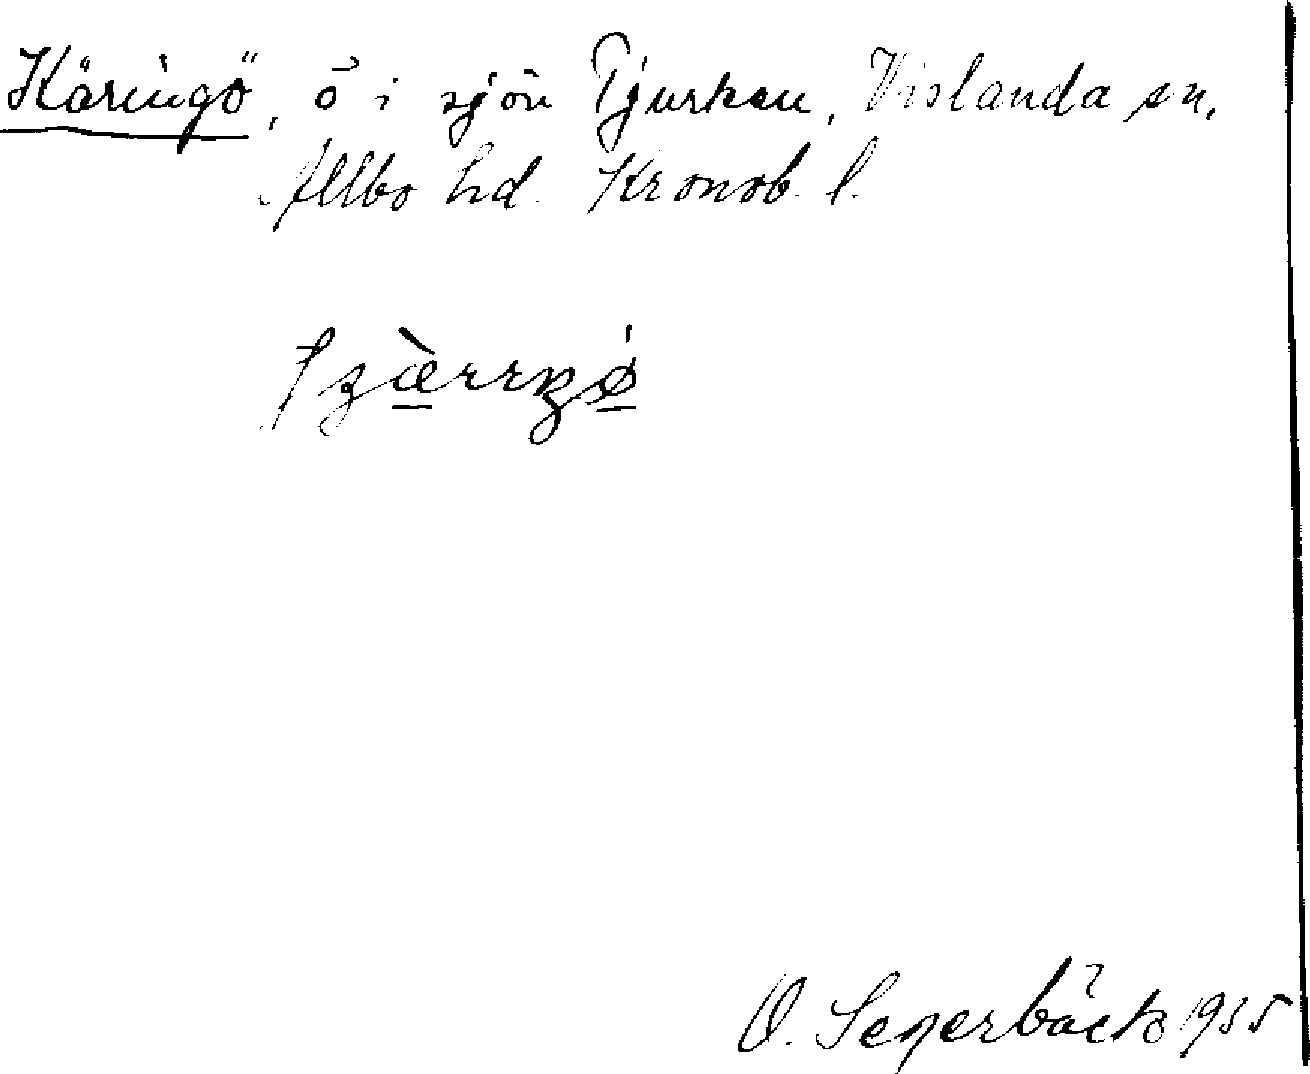 Käringö, ö i sjön Tjurken, Vislanda sn,
Allbo hd. Kronob. l.
O. Segerbäck 1935